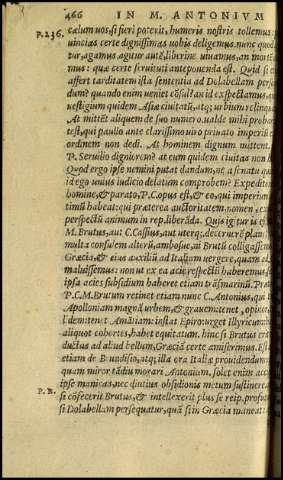 466 IN M. ANTONIVM
P.236. cælum uos, si fieri poterit, humeris nostris tollemus: 
uincias certe dignissimas uobis deligemus. nunc quod
tur, agamus. agitur autē, liberine uiuamus, an mortē
mus: quæ certe seruituti anteponenda est. Quid si e
affert tarditatem ista sententia ad Dolabellam perse
dum? quando enim ueniet cōsul? an id expectamus,
uestigium quidem Asiæ ciuitatū, atq; urbium relinqua
At mittēt aliquem de suo numero. ualde mihi probari
test, qui paulo ante clarissimo uiro priuato imperiū e
ordinem non dedi. At hominem dignum mittent.
P. Seruilio digniorem? at eum quidem ciuitas non h
Quod ergo ipse nemini putat dandum, ne a senatu qui
id ego unius iudicio delatum comprobem? Expedito
homine, & parato, P.C. opus est, & eo, qui imperium
timū habeat: qui præterea auctoritatem, nomen, exer
perspectū animum in rep. liberāda. Quis igitur is est
M. Brutus, aut C. Cassius, aut uterq;. decernerē plane
multa consulem alterū, ambosue, ni Brutū colligassem
Græcia, & eius auxiliū ad Italiam uergere, quam ad
maluissemus: non ut ex ea acie respectū haberemus: se
ipsa acies subsidium haberet etiam trāsmarinū. Præt
P.C. M. Brutum retinet etiam nunc C. Antonius, qui
Apolloniam magnā urbem, & grauem: tenet, opinor,
l'demi: tenet Amātiam: instat Epiro: urget Illyricum:
aliquot cohortes, habet equitatum. hinc si Brutus eri
ductus ad aliud bellum, Græciā certe amiserimus. Est
etiam de Brundisio, atq; illa ora Italiæ prouidendum.
quam miror tādiu morari Antonium. solet enim acc
ipse manicas, nec diutius obsidionis metum sustinere.
P. R. si cōfecerit Brutus, & intellexerit plus se reip. profut
si Dolabellam persequatur, quā si in Græcia maneat: